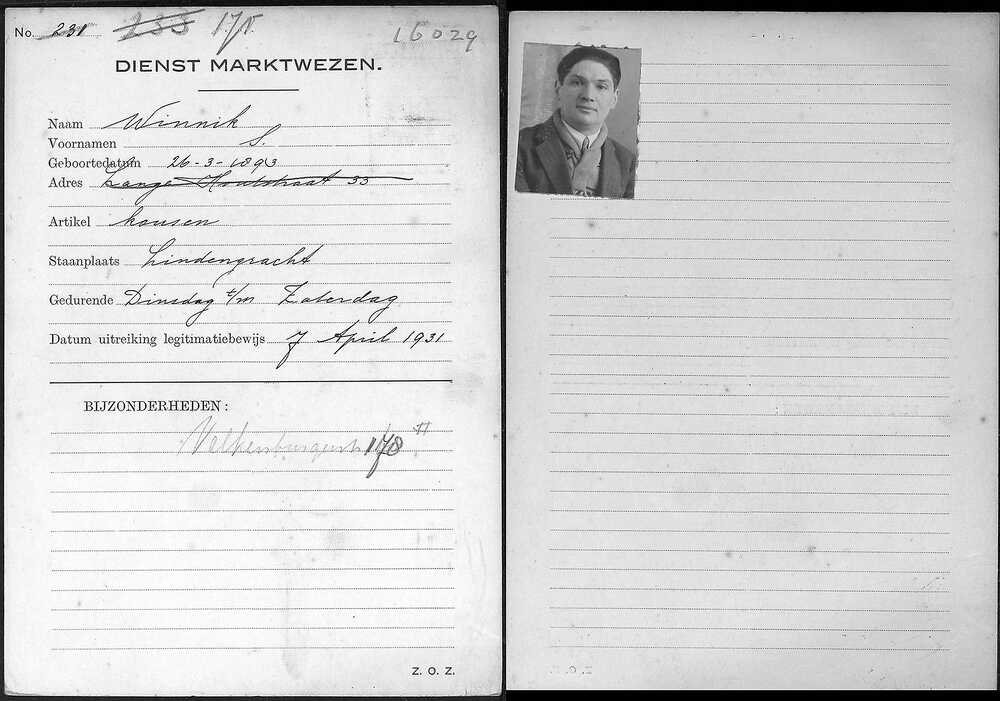 No. 231 233 171. 16029
DIENST MARKTWEZEN.
Naam Winnik
Voornamen S.
Geboortedatum 26-3-1893
Adres Lange Houtstraat 33
Artikel kousen
Staanplaats Lindengracht
Gedurende Dinsdag t/m Zaterdag
Datum uitreiking legitimatiebewijs 7 April 1931
BIJZONDERHEDEN:
Valkenburgerstr 178 II
Z. O. Z.